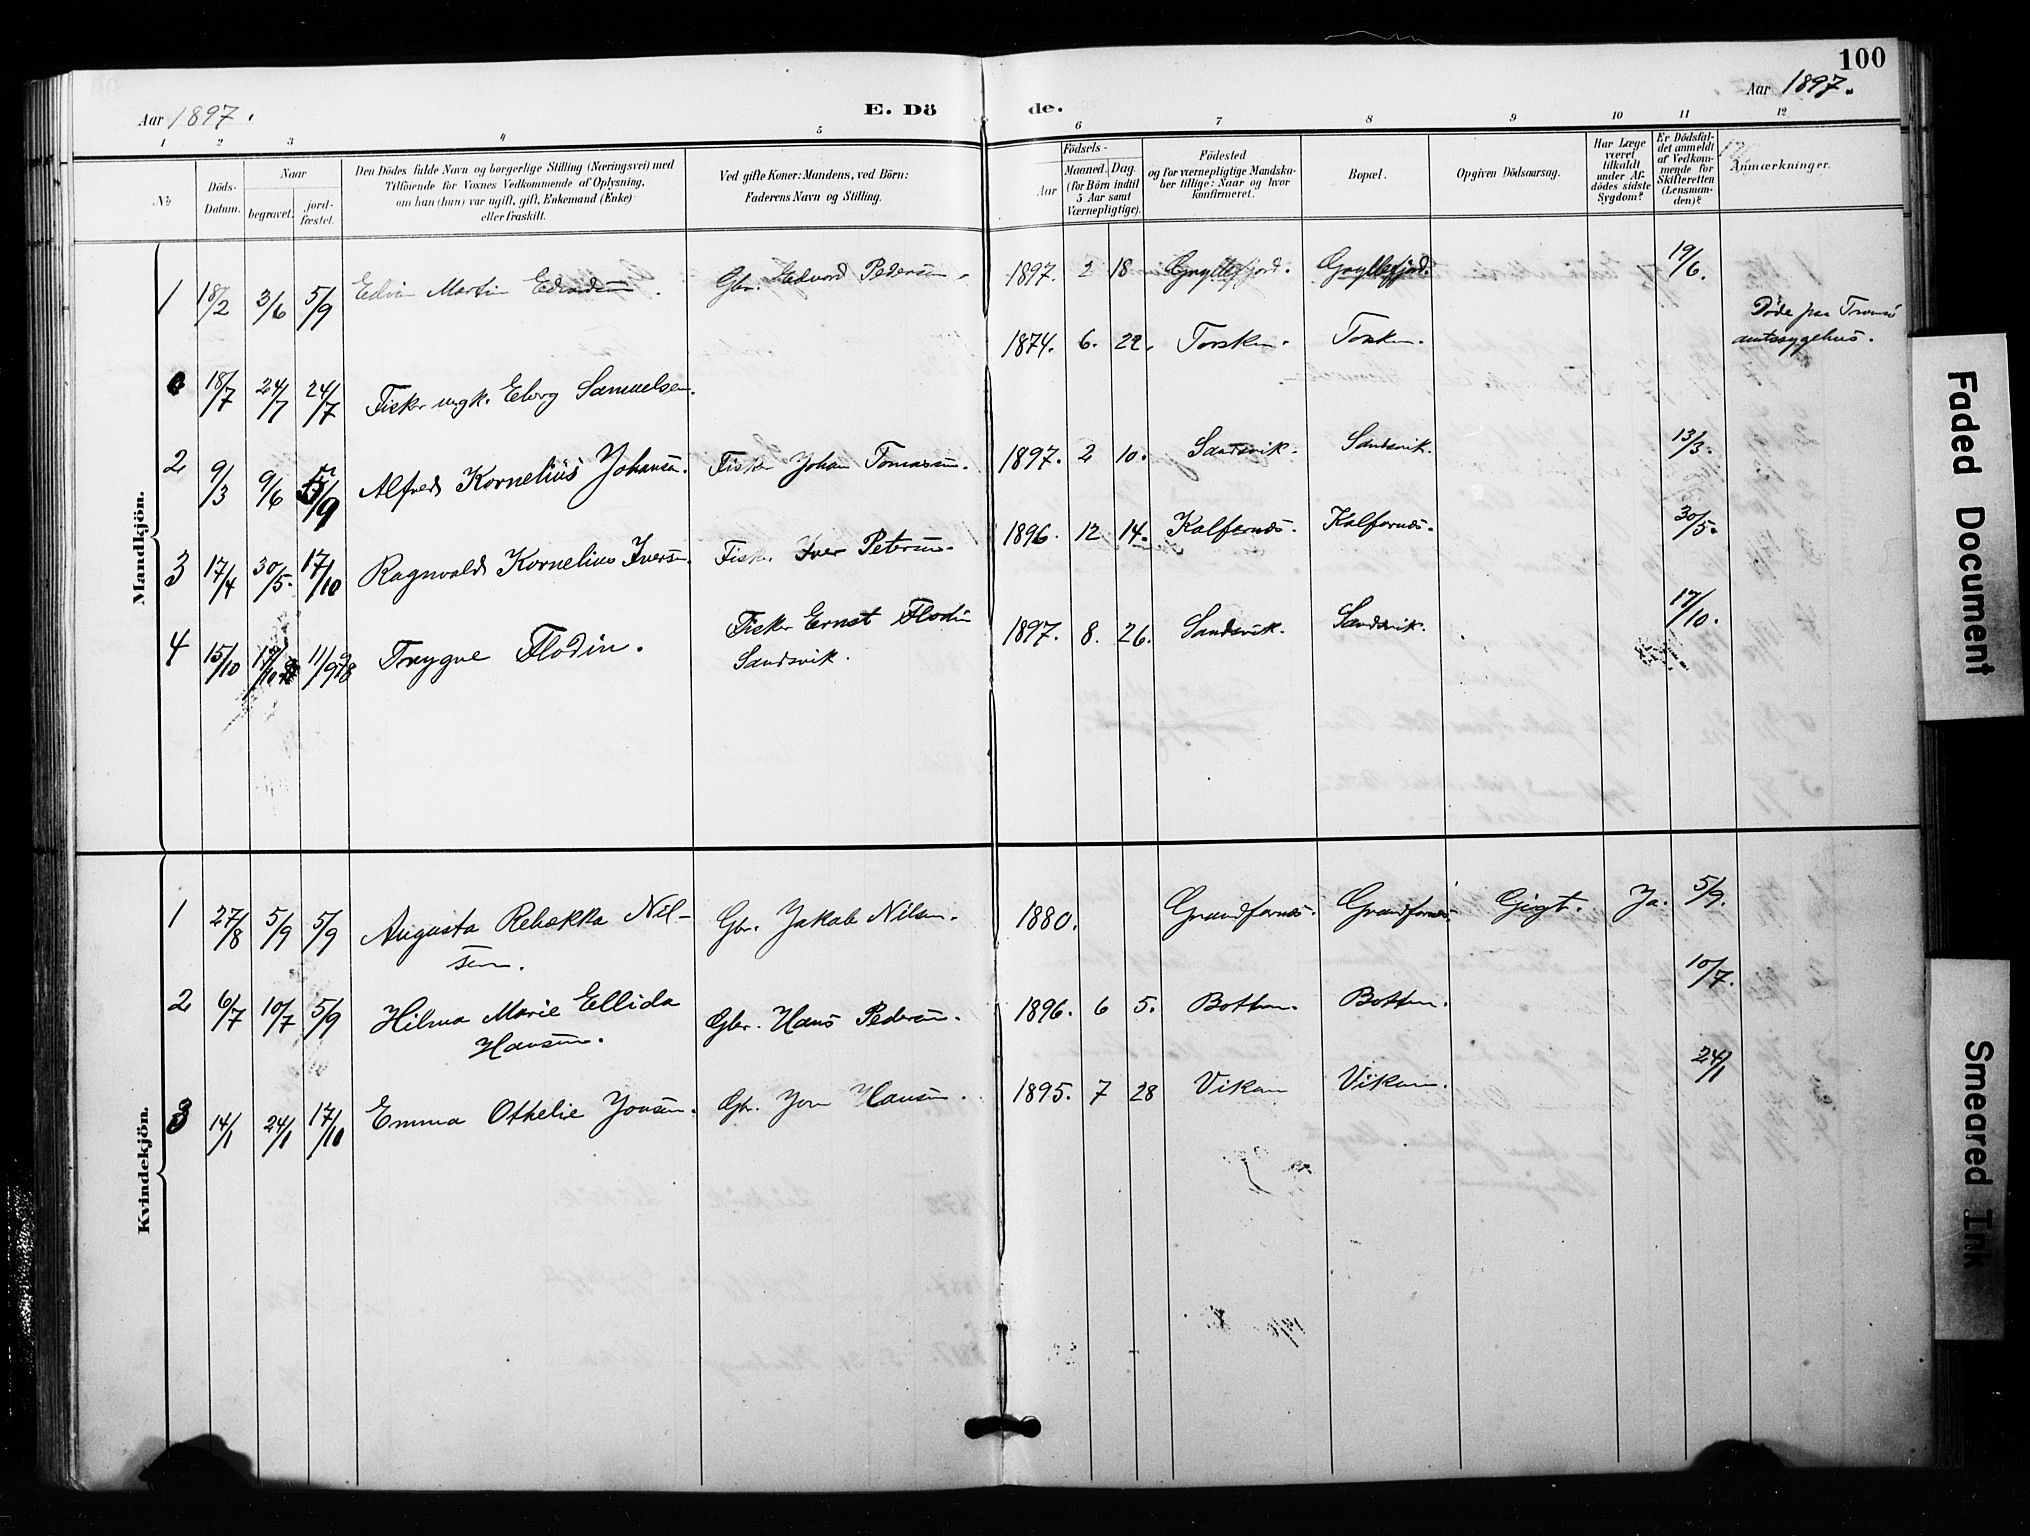 100
Aar 1897.
E. Döde.
Aar 1897.
1 2 3 4 5 6 7 8 9 10 11 12
№
Döds-Datum.
Naar
begravet.
jord-fæstet.
Den Dödes fulde Navn og borgerlige Stilling (Næringsvei) med
Tilföiende for Voxnes Vedkommende af Oplysning,
om han (hun) var ugift, gift, Enkemand (Enke)
eller fraskilt.
Ved gifte Koner: Mandens, ved Börn:
Faderens Navn og Stilling.
Födsels-
Aar
Maaned. Dag.
(for Börn indtil
5 Aar samt
Værnepligtige).
Födested
og for værnepligtige Mandska-
ber tillige: Naar og hvor
konfirmeret.
Bopæl.
Opgiven Dödsaarsag.
Har Læge
været
tilkaldt
under Af-
dödes sidste
Sygdom?
Er Dödsfal-
det anmeldt
af Vedkom-
mende for
Skifteretten
(Lensman-
den)?
Anmærkninger.
Mandkjön.
1 18/2 3/6 5/9 Edvin Martin Edvardsen. Gbr. Edvard Pedersen. 1897. 2 18 Gryllefjord. Gryllefjord. 19/6.
0 18/7 24/7 24/7 Fisker ugk. Eberg Samuelsen. 1874. 6. 22. Torsken. Torsken. Döde paa Tromsö
amtssygehus.
2 9/3 9/6 5/9 Alfred Kornelius Johansen. Fisker Johan Tomassen. 1897. 2 10. Sandsvik. Sandsvik. 13/3.
3 17/4 30/5. 17/10 Ragnvald Kornelius Iversen. Fisker Iver Petersen. 1896. 12 14. Kalfarnæs. Kalfarnæs. 30/5.
4 15/10 17/10 11/9 98 Trygve Flodin. Fisker Ernst Flodin
Sandsvik. 1897. 8. 26. Sandsvik. Sandsvik. 17/10.
Kvindekjön.
1 27/8 5/9 5/9 Augusta Rebekka Nil-
sen. Gbr. Jakob Nilsen. 1880. Grandfarnæs. Grandfarnæs. Gigt. Ja. 5/9.
2 6/7 10/7 5/9 Hilma Marie Ellida
Hansen. Gbr. Hans Pedersen. 1896. 6 5. Botten. Botten. 10/7.
3 14/1 24/1 17/10 Emma Othelie Jonsen. Gbr. Jon Hansen. 1895. 7 28 Vikan Vikan. 24/1
Faded Document
Smeared Ink